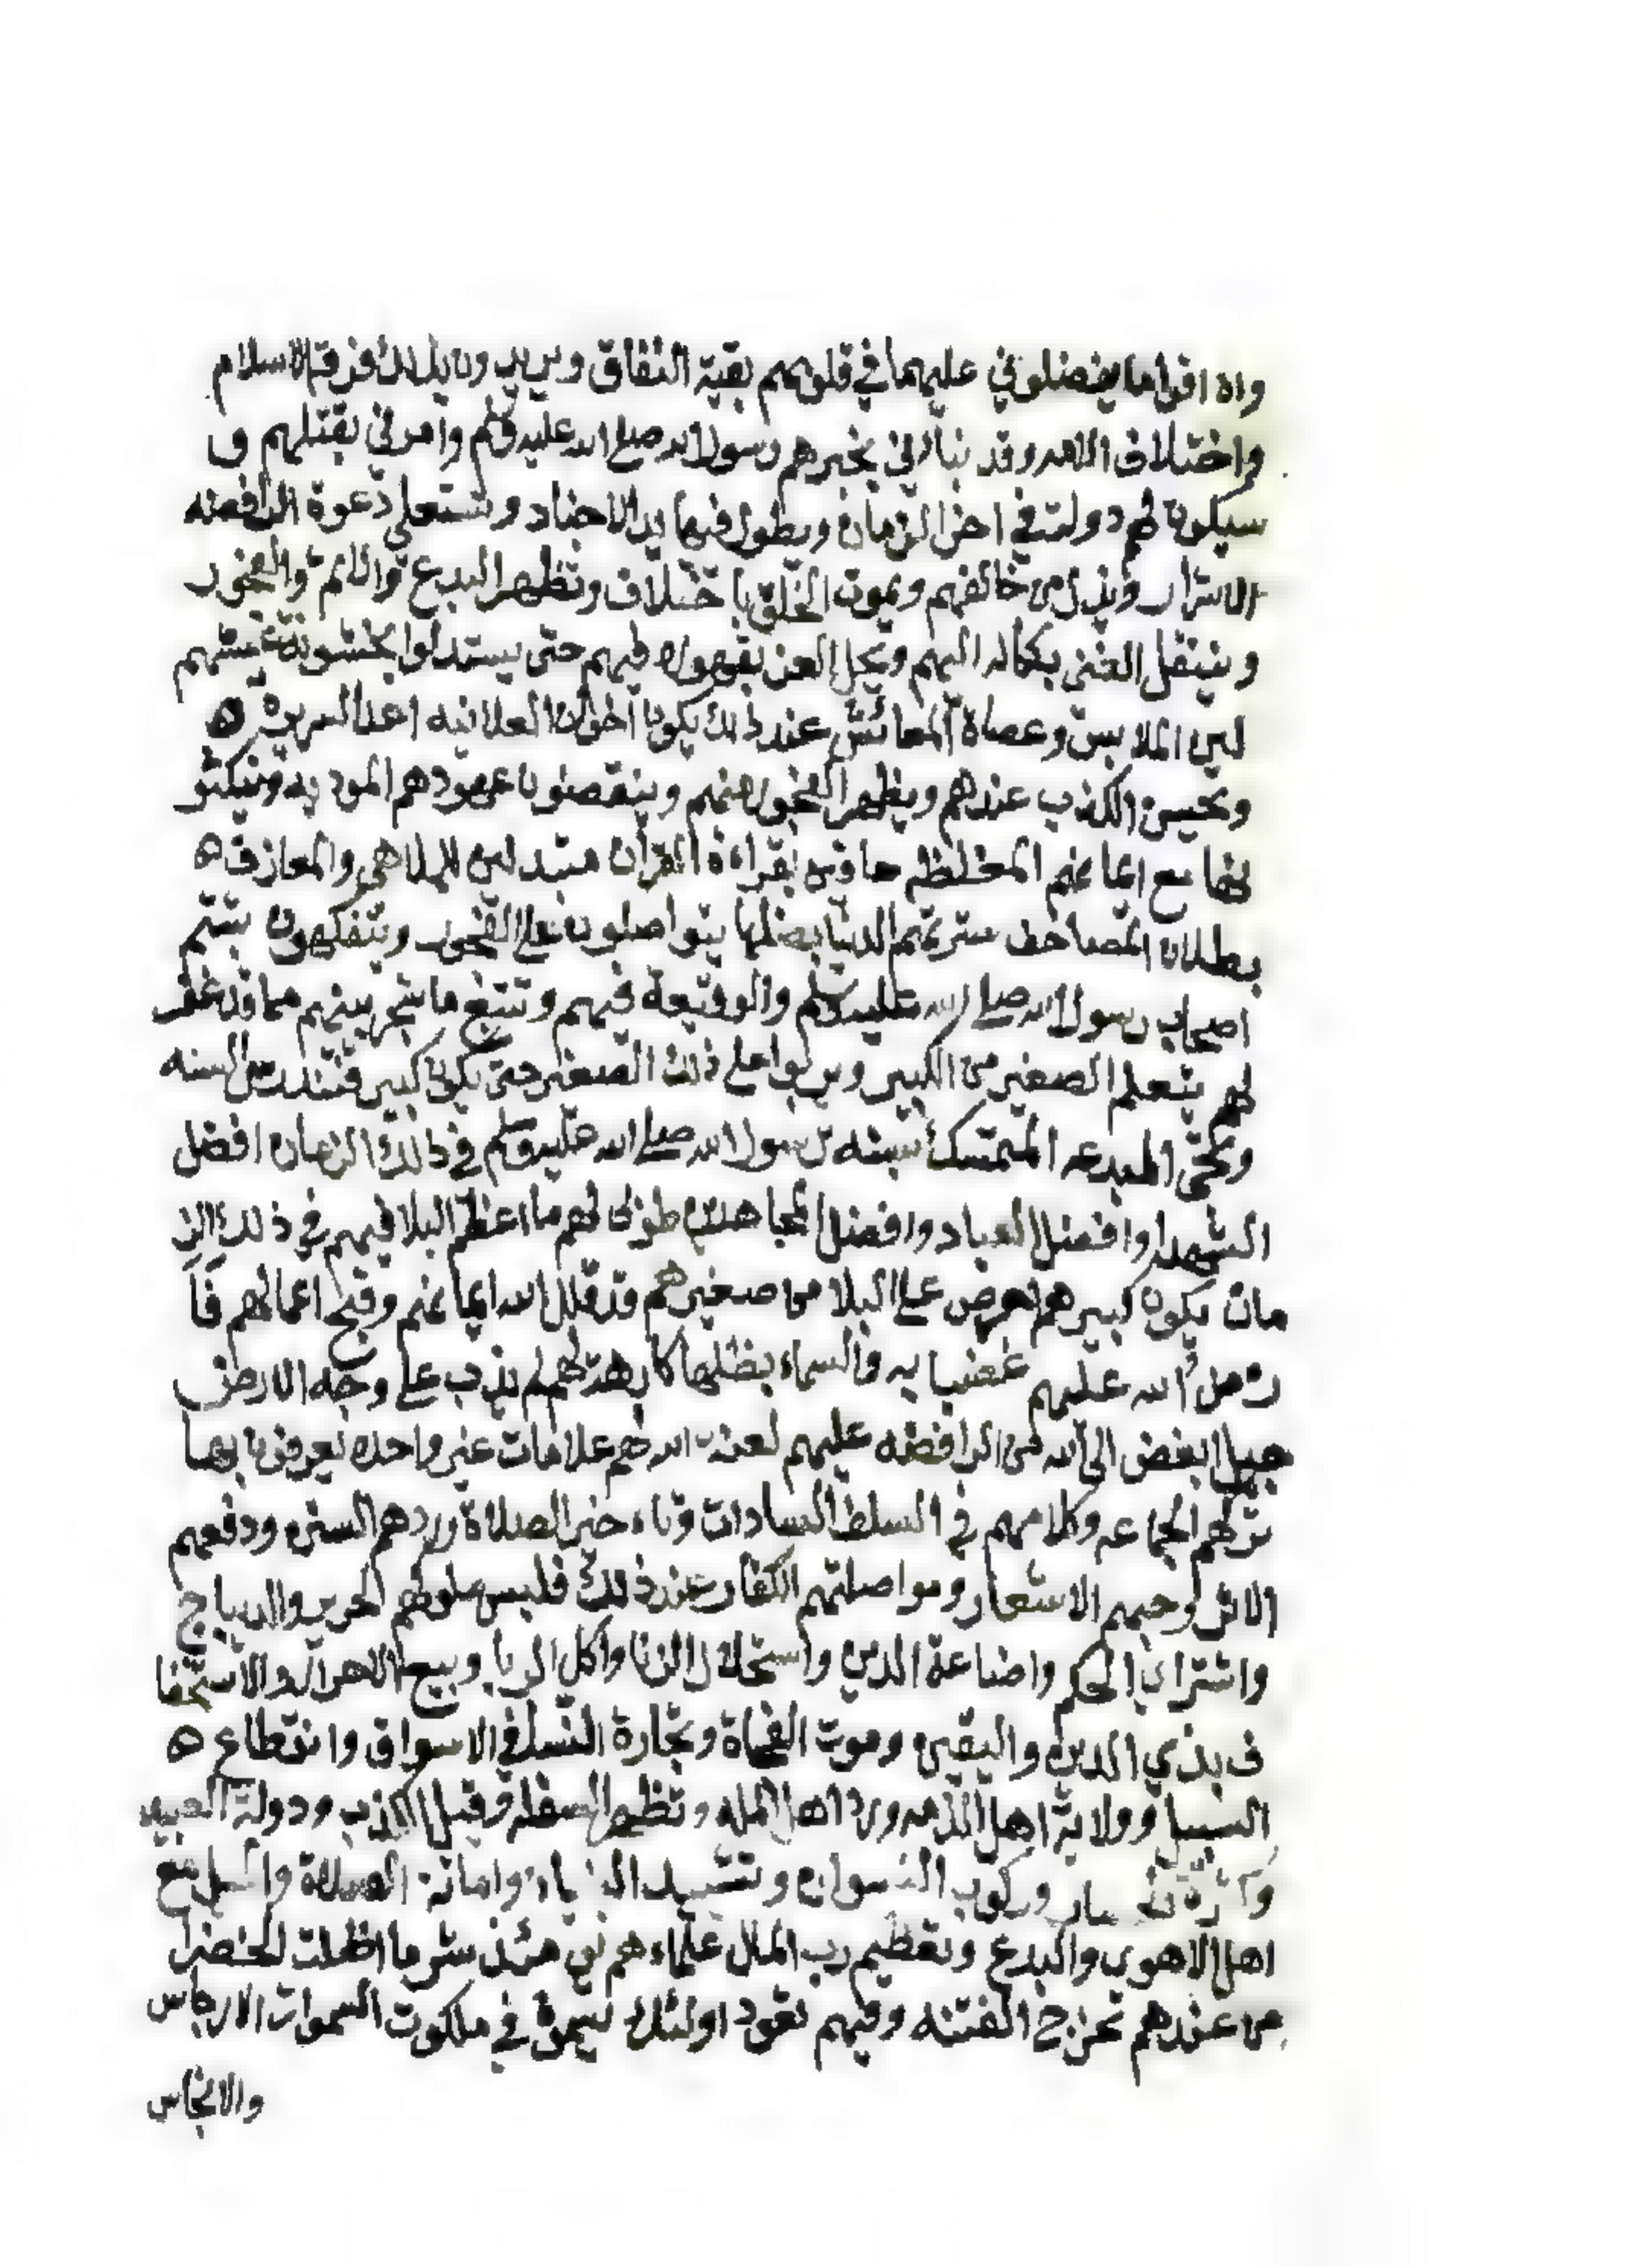 وان اقواما يفضلوني عليهما في قلوبهم بقية النفاق ويريدون بذلك فرقة الاسلام
واختلاف الامه وقد نباني بخبرهم رسول الله صلى الله عليه وسلم وامرني بقتلهم و
سيكون لهم دولة في اخر الزمان ويطول فيها يد الاجناد وتستعلي دعوة الرافضه
الاشرار ويذل من خالفهم ويموت الخلق باختلاف وتظهر البدع والفجور
وينتقل الغنى بكماله اليهم ويحل العز بقهوره فيهم حتى يستدلوا بخشونة عيشهم
لين الملابس وعصاة المعائش عند ذلك يكون اخوان العلانيه اعدا السريرة ه
ويحسن الكذب عندهم ويظهر الفجور منهم وينقضون عهودهم الموديه وينكثو
نها مع ايمانهم المغلظه بقراءة القران مبتدلين للملاهي والمعازف ه
بطلان المصاحف الدنيا يتواصلون على الفجور ويتفكهون بشتم
اصحاب رسول الله صلى الله عليه وسلم والوقيعة فيهم وتتبع ما شجر بينهم مما قد غفر
لهم يتعلم الصغير من الكبير ويربوا على ذلك الصغير حتى يكون كبير فتندرس السنه
وتحيى البدعه المتمسك بسنه رسول الله صلى الله عليه وسلم في ذلك الزمان افضل
الشهدا وافضل العباد وافضل المجاهدين طوبى لهم ما اعظم البلا فيهم في ذلك الز
مان يكون كبيرهم احرص على البلا من صغيرهم قد قلل الله ايمانهم وقبح اعمالهم فا
رض الله عليهم غضبا والسماء بظلها كارهة لهم لم يذب على وجه الارض
جيل ابغض الى الله من الرافضه عليهم لعنة الله لهم علامات غير واحده يعرفون بها
تركهم الجماعه وكلامهم في السلف السادات وتاخير الصلاة وردهم السنن ودفعهم
الاثار وحبهم الاشعار ومواصلتهم الكفار عند ذلك فليس ملوكهم الحرير والديباج
واشتراء الحكم واضاعة الدين واستحلال الزنا واكل الربا وبيع والاستخفا
ف بذي الدين واليقين وموت الفجاة وتجارة النسا في الاسواق وانقطاع ه
السبيل وولاية اهل الذمه ورد اهل المله وتظهر السفله وقيل الكذب ودولة العبيد
وركوب وتشييد وامانة الصلاة والميل مع
اهل الاهوى والبدع وتعظيم رب المال علماءهم شر ما اظلت الخضرا
من عندهم تخرج الفتنه وفيهم تعود اولئك في ملكوت السموات الارجاس
والانجاس